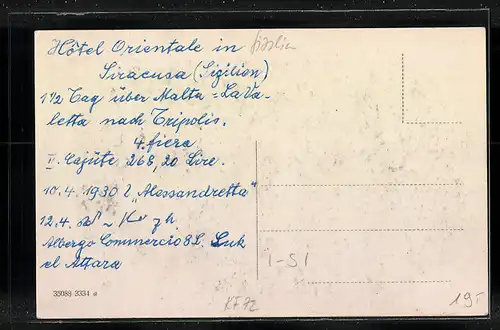 Hôtel Orientale in
Siracusa (Sizilien)
1 1/2 Tag über Malta = La Va-
letta nach Tripolis.
4. fiera
II. Cajüte 268,20 Lire.
10.4.1930 "Alessandretta"
12.4.
Albergo Commercio 8 L. Suk
el Attara
I-SI
33088 3334 a
KF72
19.-